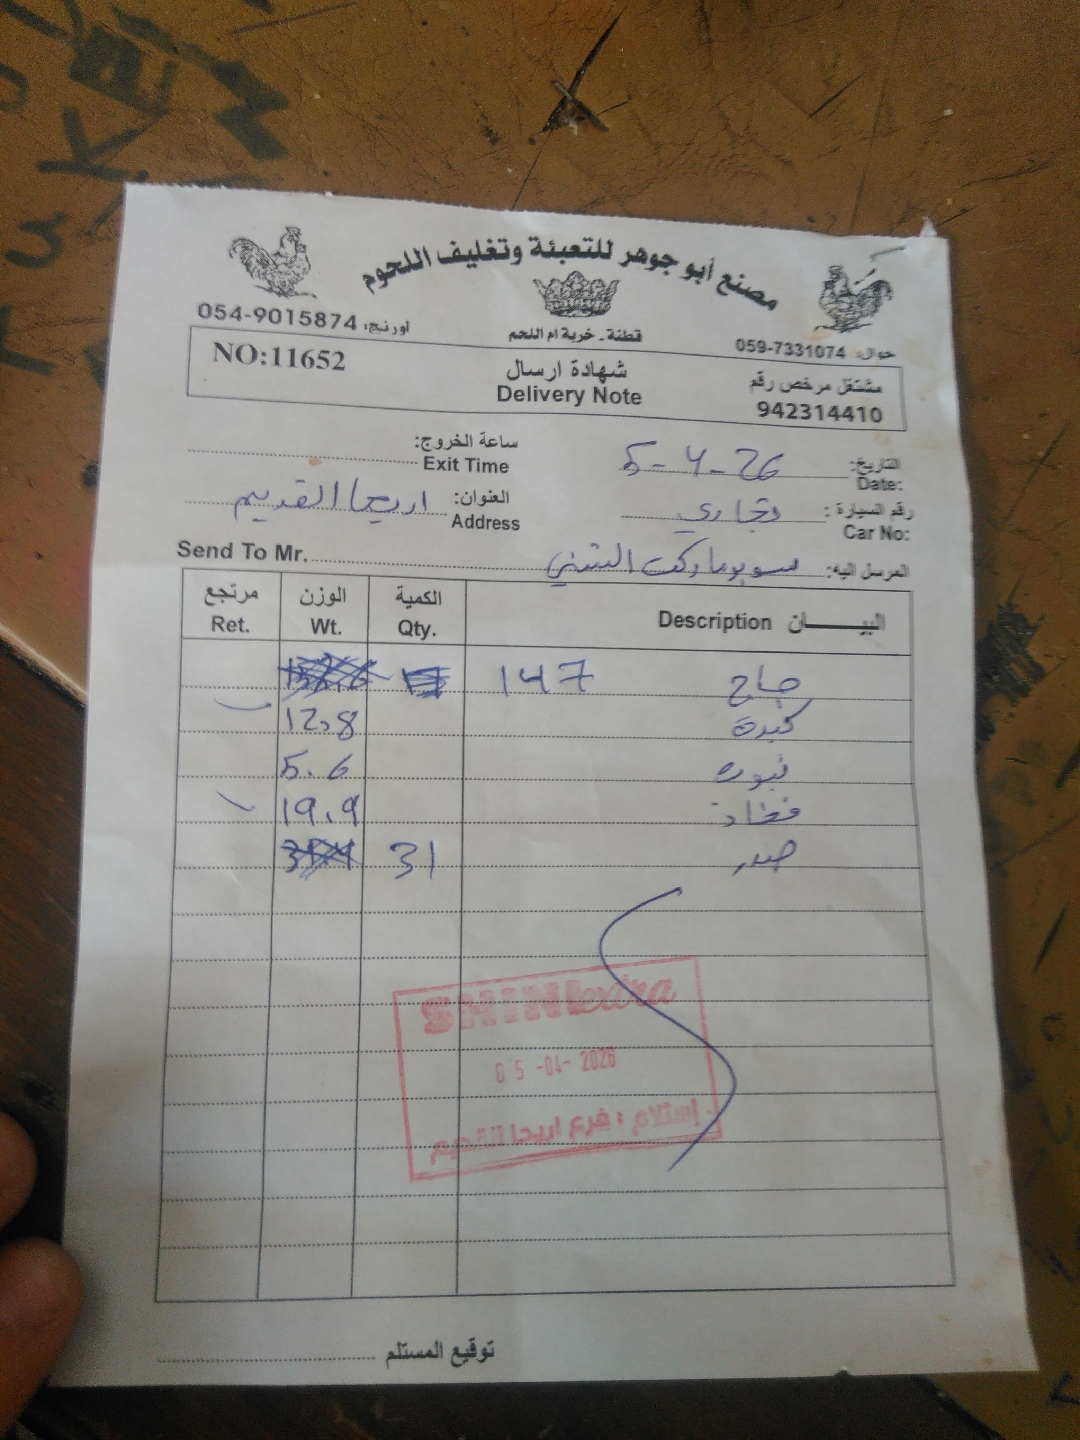 مصنع أبو جوهر للتعبئة وتغليف اللحوم
قطنة - خربة ام اللحم
جوال: 059-7331074
أورنج: 054-9015874
مشتغل مرخص رقم
942314410
شهادة ارسال
Delivery Note
NO:11652
التاريخ: 5-4-26
Date:
ساعة الخروج:
Exit Time
رقم السيارة: تجاري
Car No:
العنوان: اريحا القديم
Address
المرسل اليه: سوبرماركت الشني
Send To Mr.
البيــــــان Description الكمية Qty. الوزن Wt. مرتجع Ret.
147
كبدة 12.8
5.6
19.9
صدر 31
SHINI extra
05-04-2026
إستلام: فرع اريحا القديم
توقيع المستلم